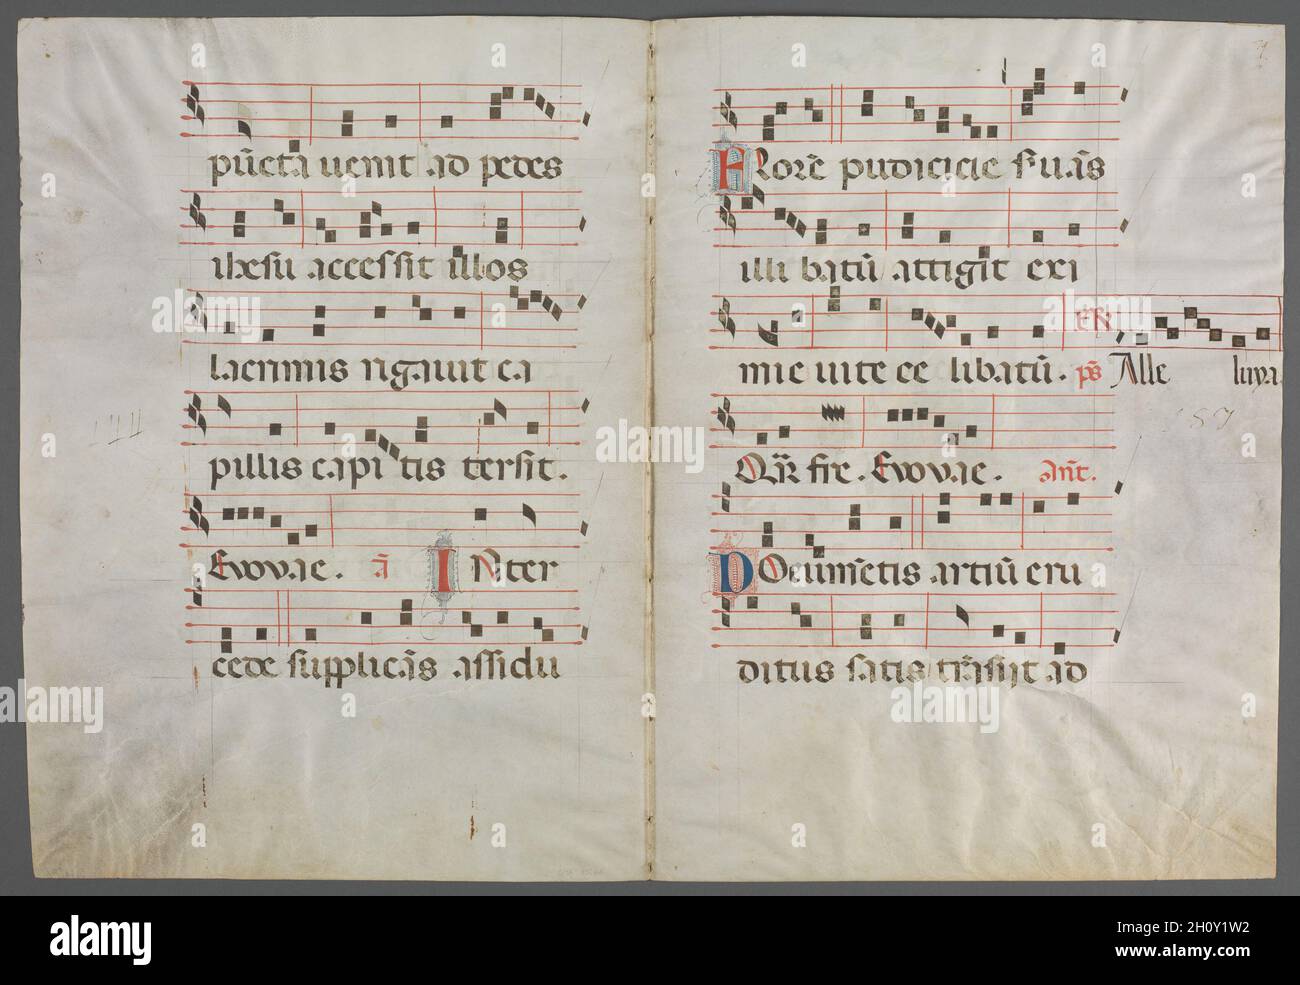 pūcta uenit ad pedes
ihesu accessit illos
lacrimis rigauit ca
pillis capitis tersit.
Evovae. ā INter
cede supplicās assidu
FLorē pudicicie suūs
illi batū attigit exi
mie uite ce libatū. ps Alle luya.
Qr̄ fre. Evovae. ant̄.
DOcumētis artiū eru
ditus satis trāsijt ad
157
alamy
Image ID: 2H0Y1W2
www.alamy.com